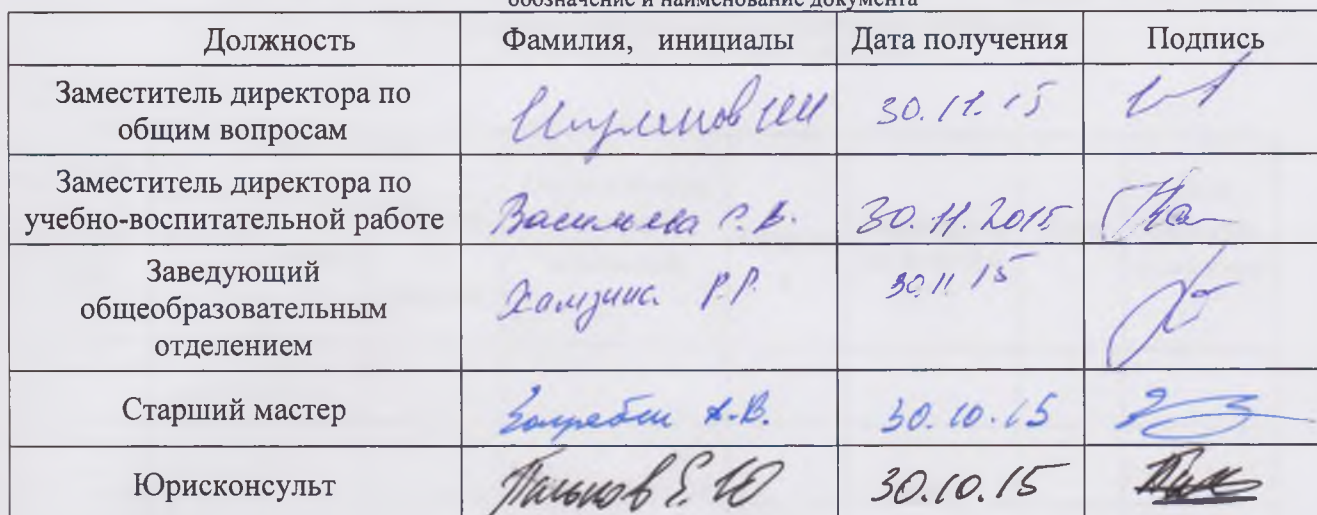 обозначение и наименование документа
Должность Фамилия, инициалы Дата получения Подпись
Заместитель директора по
общим вопросам
30.11.15
Заместитель директора по
учебно-воспитательной работе
Васильева С.В. 30.11.2015
Заведующий
общеобразовательным
отделением
Хамзина Р.Р. 30.11.15
Старший мастер А.В. 30.10.15
Юрисконсульт Паньков Е.Ю 30.10.15